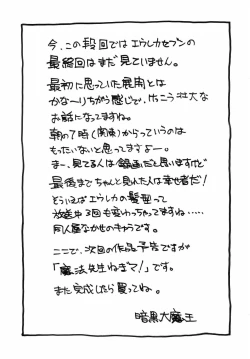 今、この段階ではエウレカセブンの
最終回はまだ見ていません。
最初に思っていた展開とは
かな〜りちがう感じで、けっこう壮大な
お話になってますね。
朝の7時(関東)からっていうのは
もったいないと思ってますよー。
まー、見てる人は録画だと思いますけど
最後までちゃんと見れた人は幸せ者だ!
どういえばエウレカの髪型って
放送中3回も変わっちゃってますね……
同人屋なかせのキャラです。
ここで、次回の作品予告ですが
「魔法先生ねぎマ!」です。
また完成したら買ってね。
暗黒大魔王